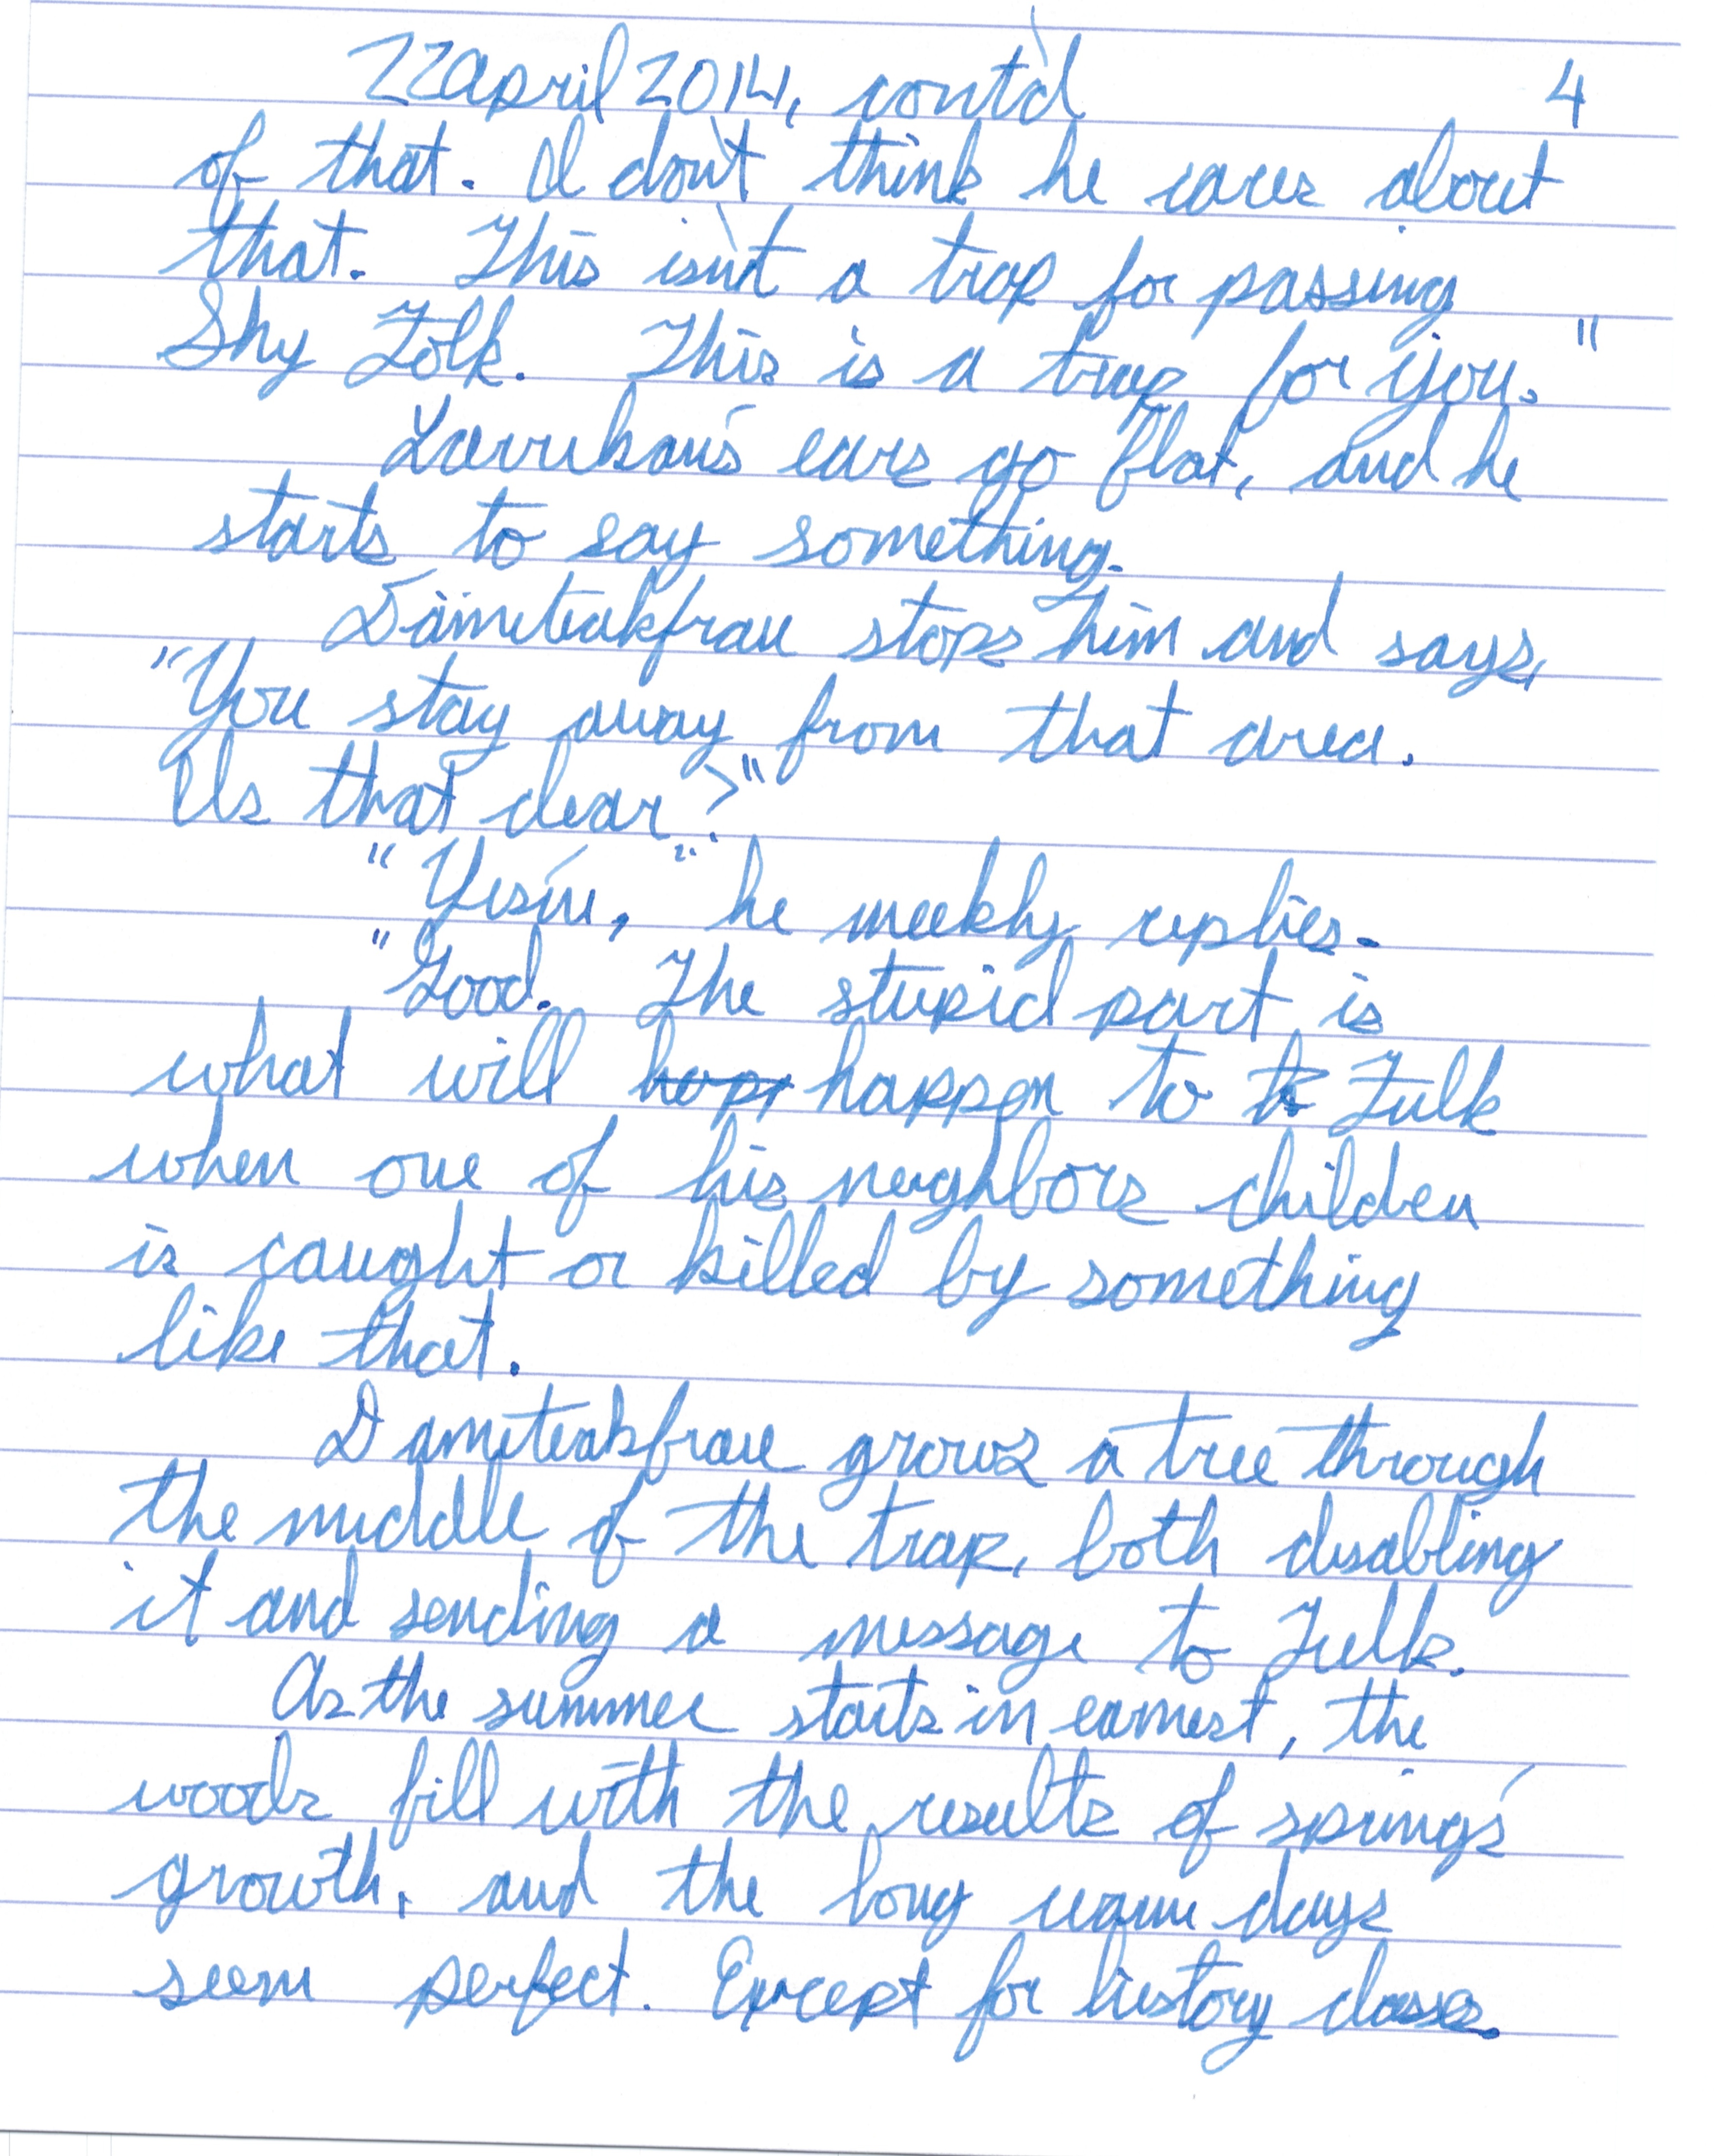 22 April 2014, cont'd 4
of that. I don't think he cares about
that. This isn't a trap for passing
Shy Folk. This is a trap for you."
Larrukan's ears go flat, and he
starts to say something.
Dameteakfrau stops him and says,
"You stay away from that area.
Is that clear?"
"Yes'm," he meekly replies.
"Good. The stupid part is
what will hop happen to t Fulk
when one of his neighbors children
is caught or killed by something
like that.
Dameteakfrau grows a tree through
the middle of the trap, both disabling
it and sending a message to Fulk.
As the summer starts in earnest, the
woods fill with the results of spring's
growth, and the long warm days
seem perfect. Except for history classes.